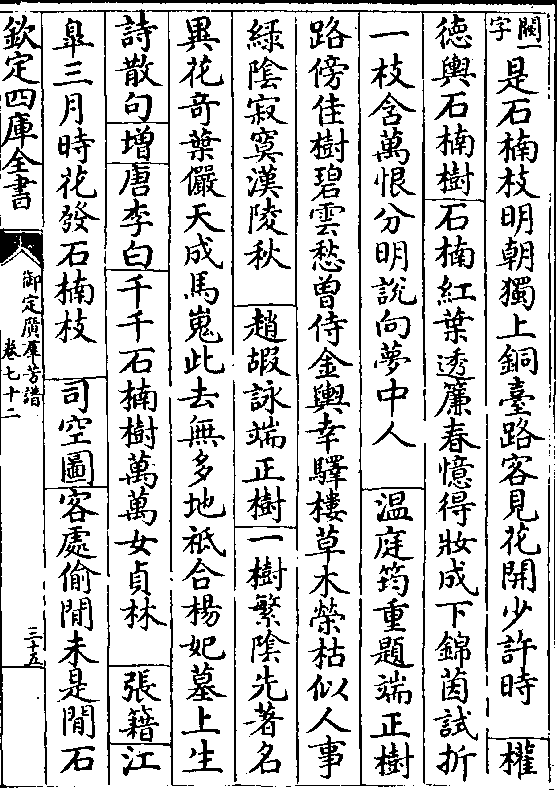 闕一字是石楠枝明朝獨上銅臺路客見花開少許時　權
德輿石楠樹石楠紅葉透簾春憶得妝成下錦茵試折
一枝含萬恨分明說向夢中人　溫庭筠重題端正樹
路傍佳樹碧雲愁曾侍金輿幸驛樓草木榮枯似人事
綠陰寂寞漢陵秋　趙嘏詠端正樹一樹繁陰先著名
異花奇葉儼天成馬嵬此去無多地祇合楊妃墓上生
詩散句增唐李白千千石楠樹萬萬女貞林　張籍江
臯三月時花發石楠枝　司空圖客處偷閒未是閒石
欽定四庫全書
御定廣羣芳譜
卷七十二
三十五